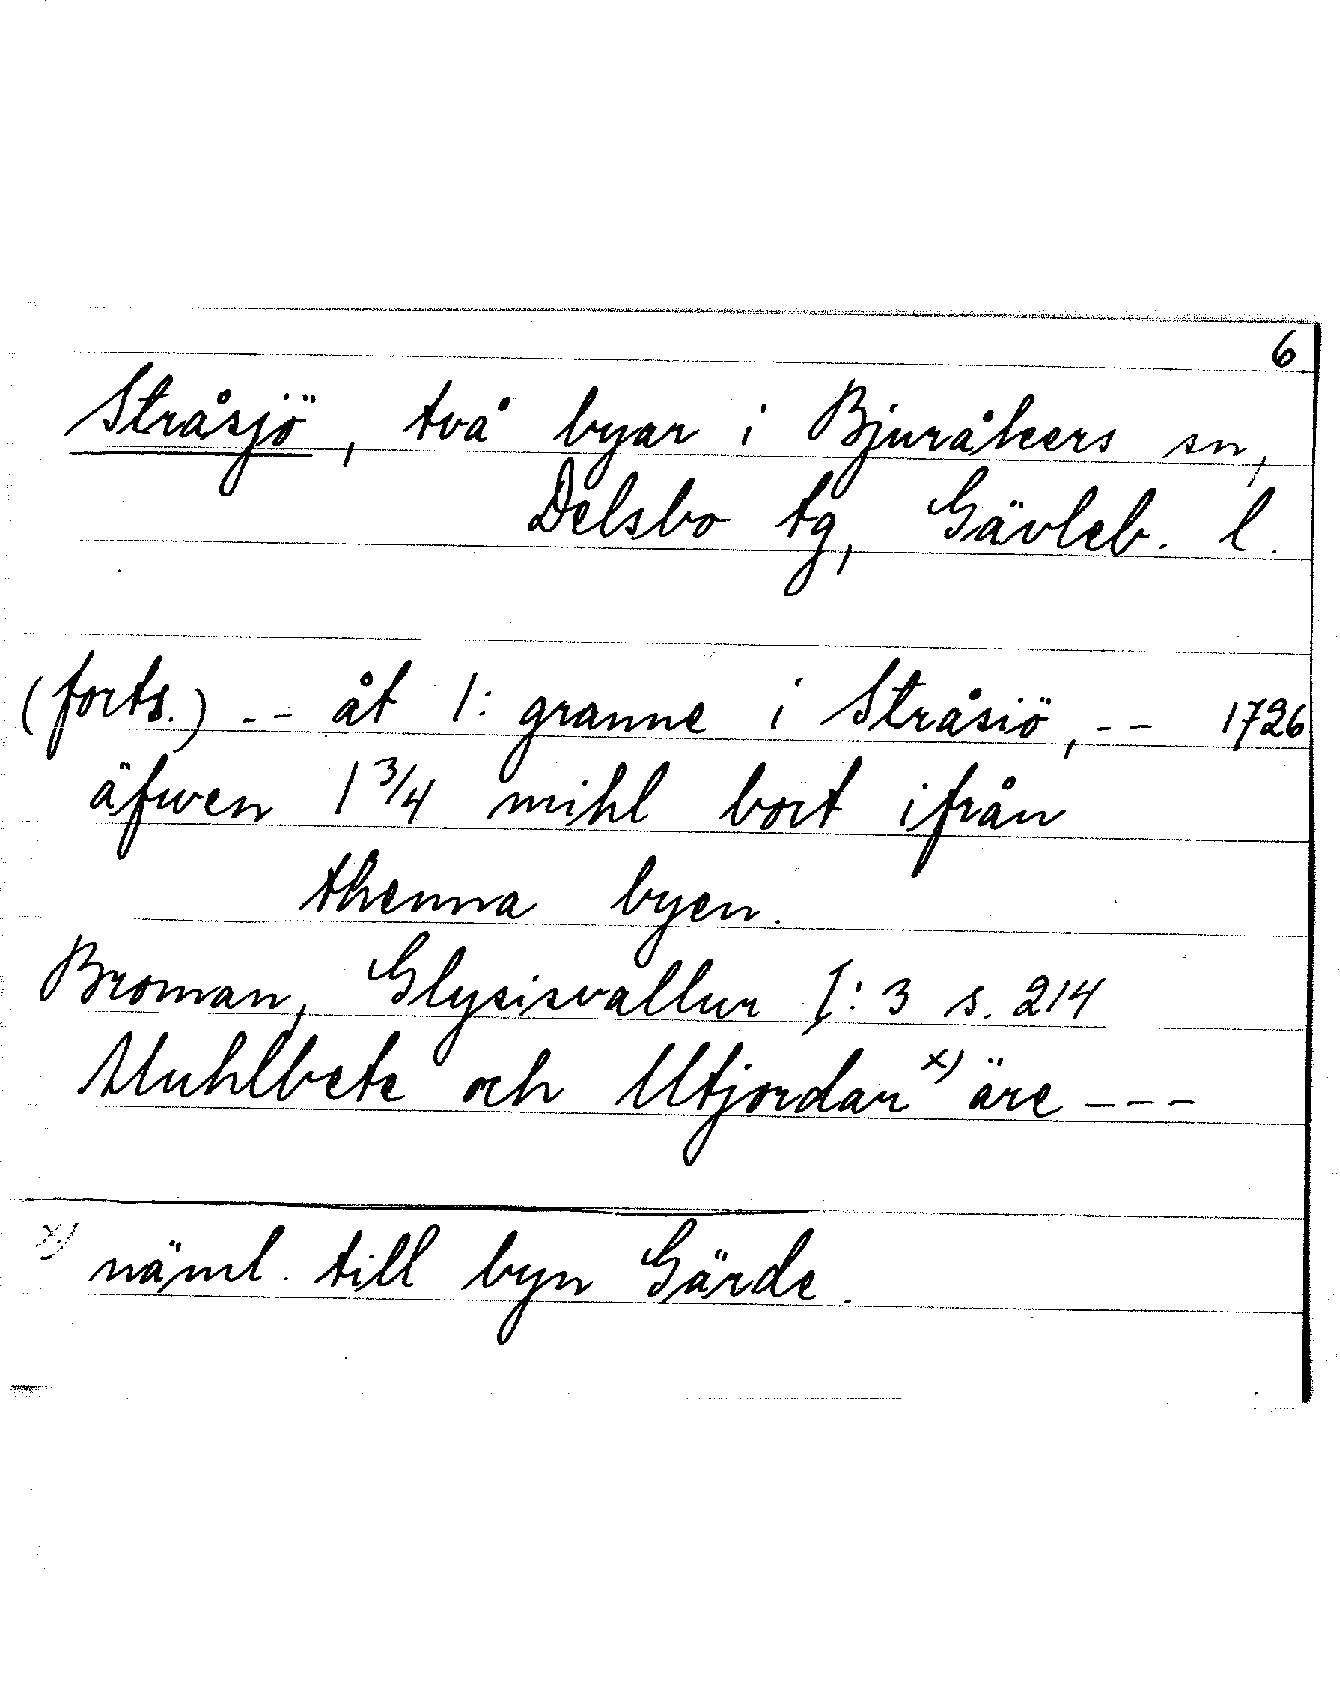 6
Stråsjö, två byar i Bjuråkers sn,
Delsbo tg, Gävleb. l.
(forts.) -- åt 1: granne i Stråsiö, -- 1726
äfwen 1 3/4 mihl bort ifrån
thenna byen.
Broman, Glysisvallur I: 3 s. 214
Muhlbete och Utjordar x) äre ---
x) näml. till byn Gärde.